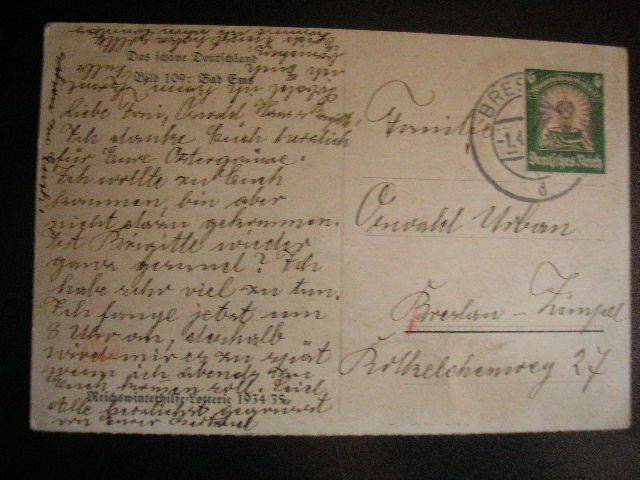 Das schöne Deutschland
Bild 109: Bad Ems
Liebe Trui, Oswald,
Ich danke Euch herzlich
für Eure Ostergrüsse.
Ich wollte zu Euch
kommen, bin aber
nicht dazu gekommen.
Ist Brigitte wieder
ganz gesund? Ich
habe sehr viel zu tun.
Ich fange jetzt um
8 Uhr an, deshalb
wird mir es zu spät
wenn ich abends zu
Euch kommen soll. Seid
Alle herzlichst gegrüsst
von Eurer
Reichswinterhilfe-Lotterie 1934/35
Familie
Oswald Urban
Breslau - Zimpel
Rotkelchenweg 27
BRES
6 6
Deutsches Reich
d